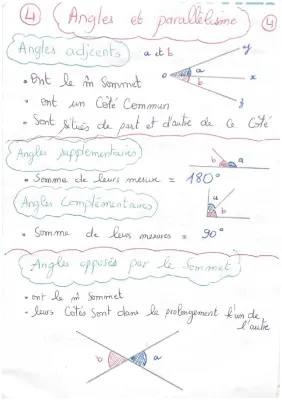 4 Angles et parallélisme 4
Angles adjcents a et b
• Ont le m̂ Sommet
• ont un Côté Commun
• Sont situés de part et d'autre de ce Côté
y
a
o
b
x
z
Angles supplementaires
b a
• Somme de leurs mesure = 180°
Angles Complémentaires
a
b
• Somme de leurs mesures = 90°
Angles opposés par le Sommet
• ont le m̂ Sommet
• leurs Côtés Sont dans le prolongement l'un de l'autre
b a